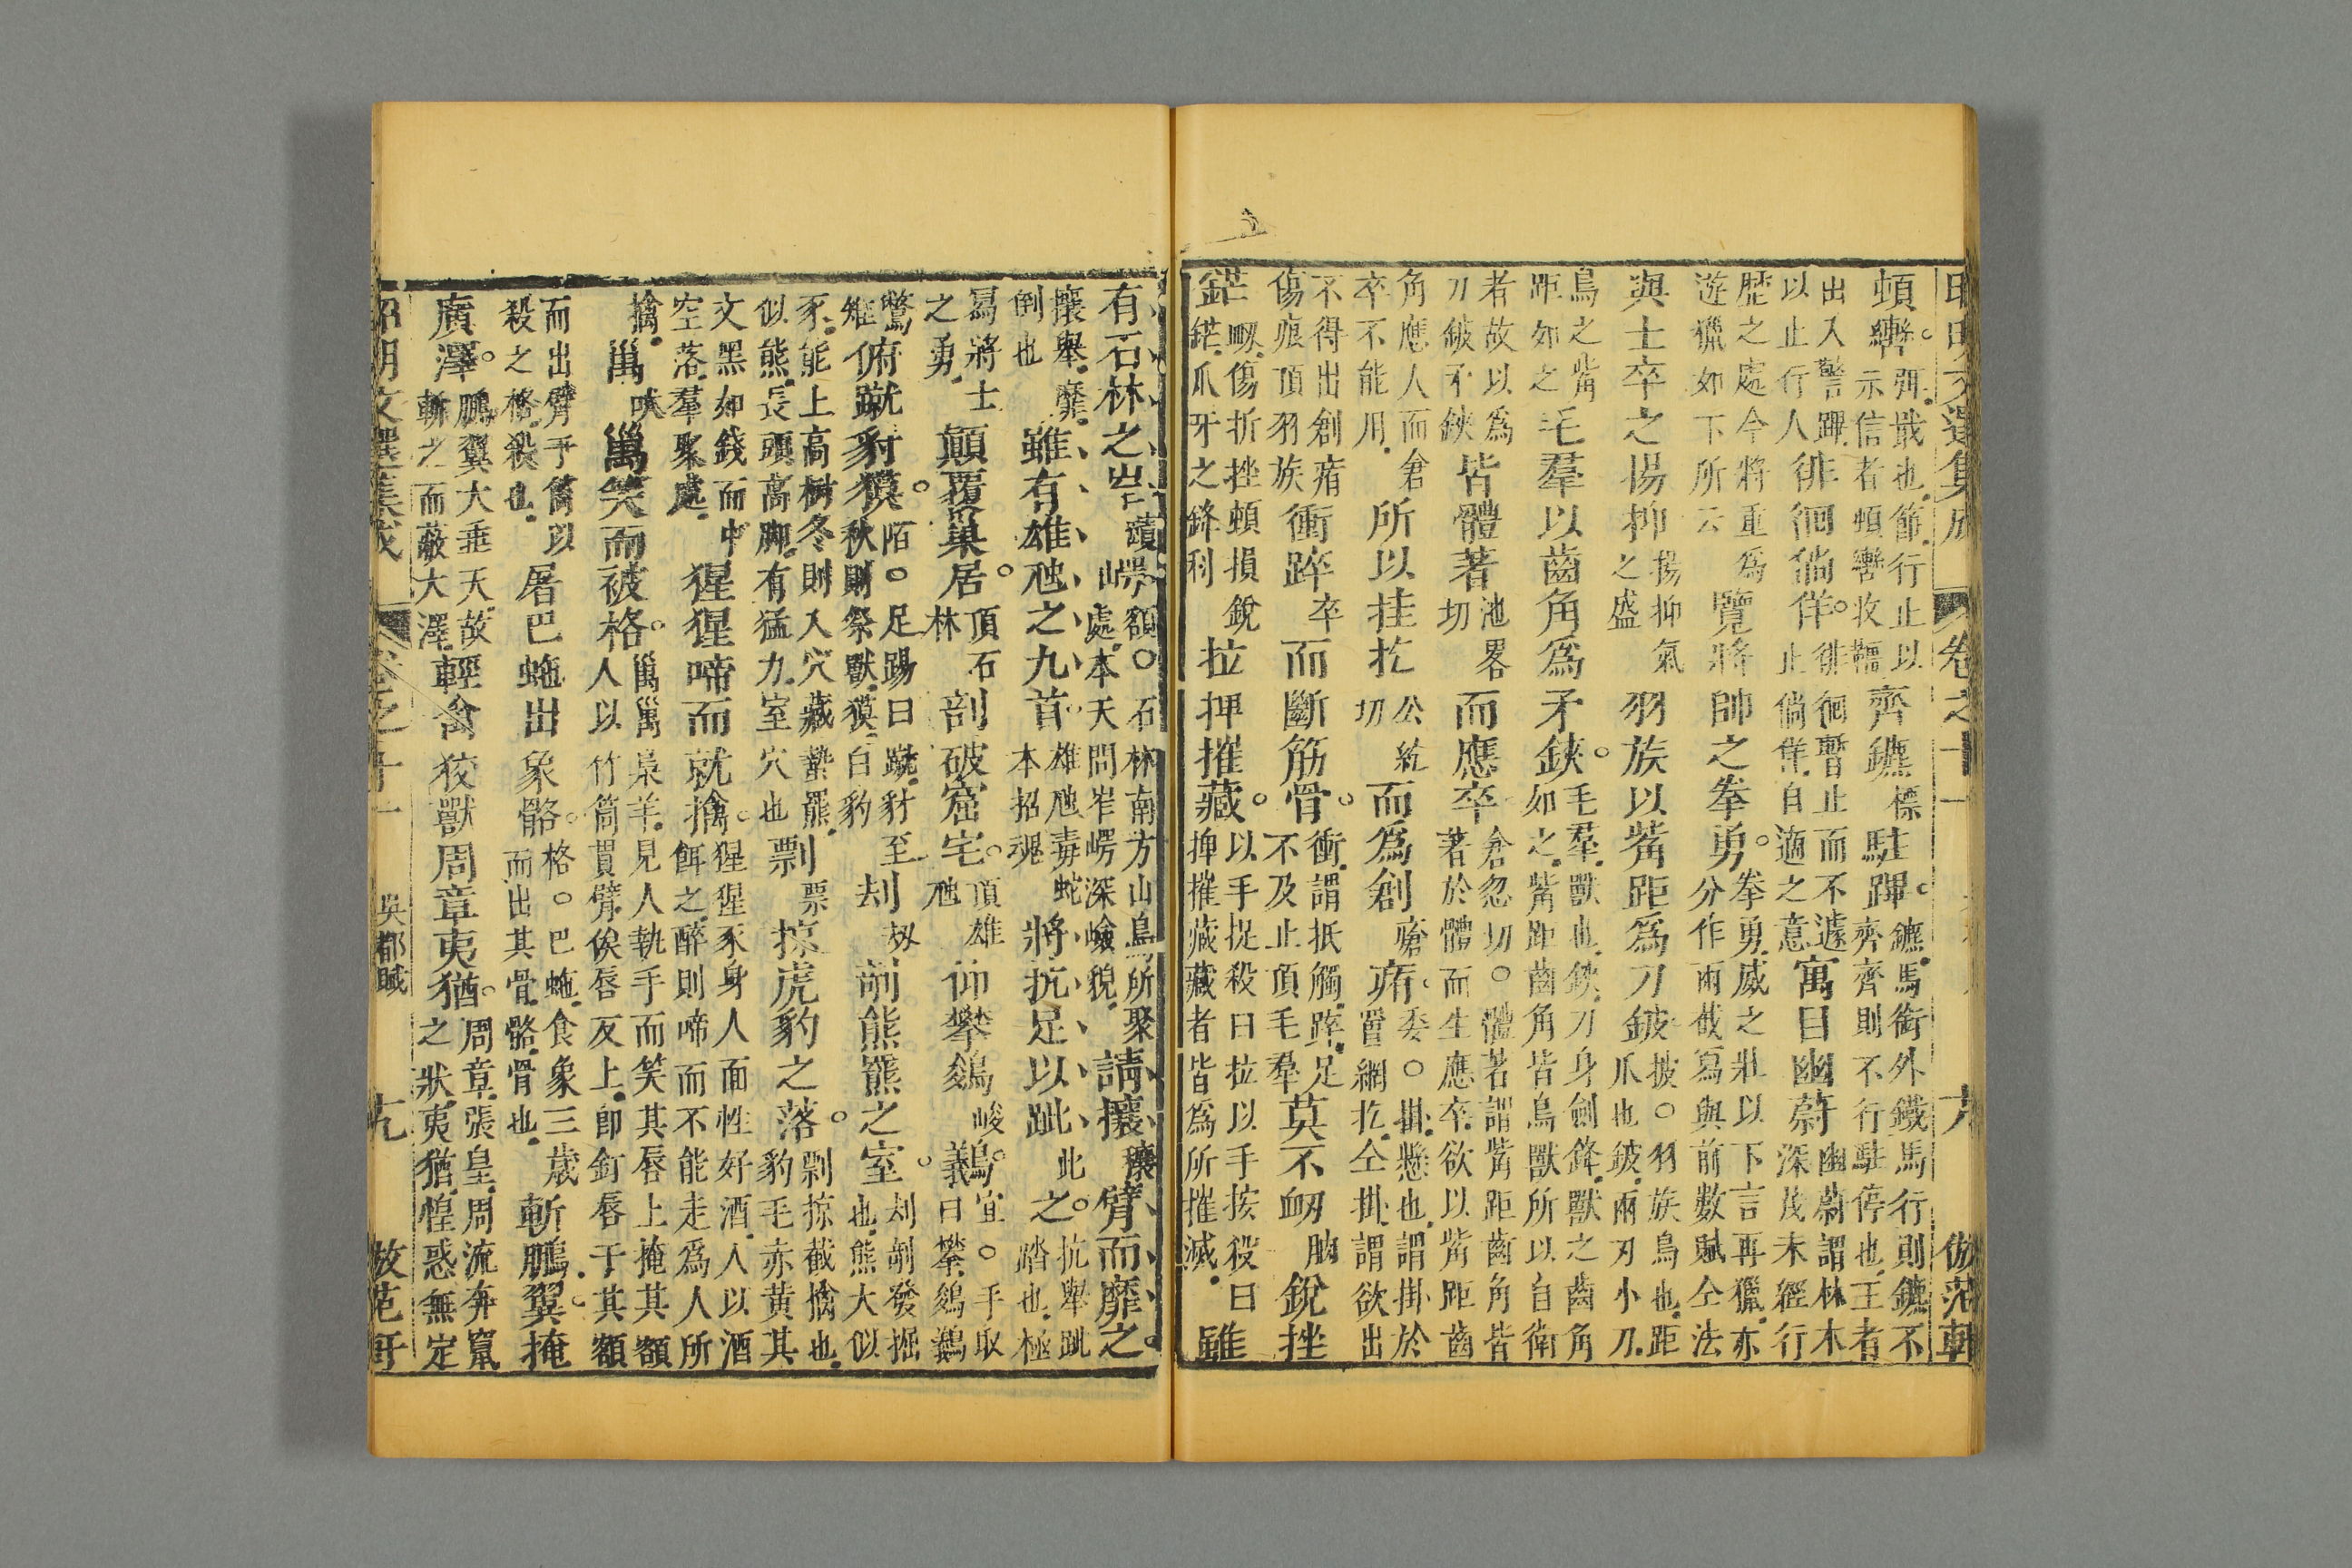 昭明文選集成 卷之十一 倣范軒
頓轡。弭戢也節行止以示信者頓轡收韁齊鑣標駐蹕。鑣馬銜外鐵馬行則鑣不齊齊則不行駐停也王者
出入警蹕以止行人徘徊倘佯。徘徊暫止而不遽止倘佯自適之意寓目幽蔚幽蔚謂林木深茂未經行
歷之處今將重為遊獵如下所云覽將帥之拳勇。拳勇威之壯以下言再獵亦分作兩截寫與前數賦仝法
與士卒之揚抑揚抑氣之盛羽族以觜距為刀鈹披○羽族鳥也距爪也鈹兩刃小刀
鳥之觜距如之毛羣以齒角為矛鋏。毛羣獸也鋏刀身劍鋒獸之齒角如之觜距齒角皆鳥獸所以自衛
者故以為刀鈹矛鋏皆體著池畧切而應卒倉忽切○體著謂觜距齒角皆著於體而生應卒欲以觜距齒
角應人而倉卒不能用所以挂扢公紇切而為創瘡痏。委○掛懸也謂掛於罥網扢仝掛謂欲出
不得出創痏傷痕頂羽族衝踤卒而斷筋骨。衝謂抵觸踤足不及止頂毛羣莫不衂朒銳挫
鋩衂傷折挫頓損銳鋩爪牙之鋒利拉押摧藏。以手捉殺曰拉以手按殺曰押摧藏藏者皆為所摧滅雖
有石林之岝崿額○石林南方山鳥所聚處本天問岝崿深嶮貌請攘穰臂而靡之。
攘舉靡倒也雖有雄虺之九首雄虺毒蛇本招魂將抗足以跐此之。抗舉跐踏也極
寫將士之勇顛覆巢居。頂石林剖破窟宅。頂雄虺仰攀鵕峻䴊。宜○手取曰攀鵕䴊
鷩雉俯蹴豺獏。陌○足踢曰蹴豺至秋則祭獸獏白豹刦刼剞熊羆之室。刦剞發掘也熊大似
豕能上高樹冬則入穴藏蟄羆似熊長頭高脚有猛力室穴也剽票掠虎豹之落。剽掠截擒也豹毛赤黃其
文黑如錢而中空落羣聚處猩猩啼而就擒。猩猩豕身人面性好酒人以酒餌之醉則啼而不能走為人所
擒笑而被格。梟羊見人執手而笑其唇上掩其額人以竹筒貫臂俟唇反上卽釘唇于其額
而出臂于筩以殺之格殺也屠巴虵出象骼。格○巴虵食象三歲而出其骨骼骨也斬鵬翼。掩
廣澤。鵬翼大垂天故斬之而蔽大澤輕禽狡獸周章夷猶。周章張皇周流奔竄之狀夷猶惶惑無定
昭明文選集成 卷之十一 吳都賦 九 倣范軒